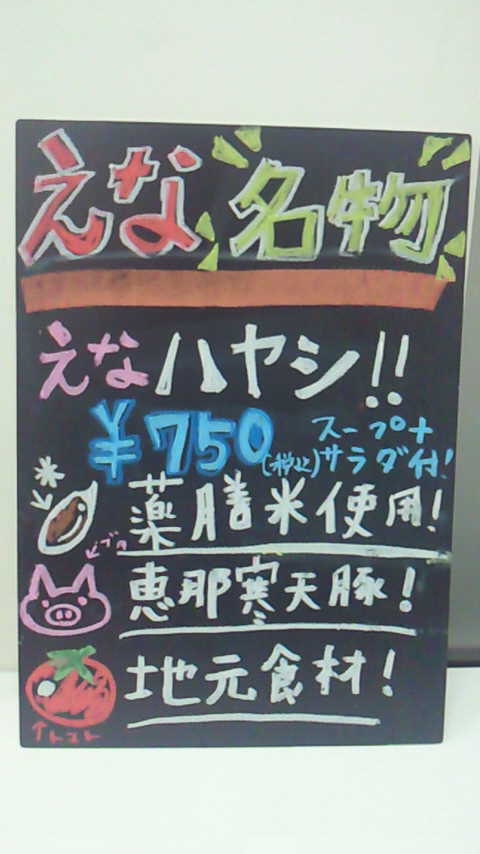 えな名物
えなハヤシ!!
¥750(税込)スープ+
サラダ付!
米
薬膳米使用!
ブタ
恵那寒天豚!
地元食材!
トマト